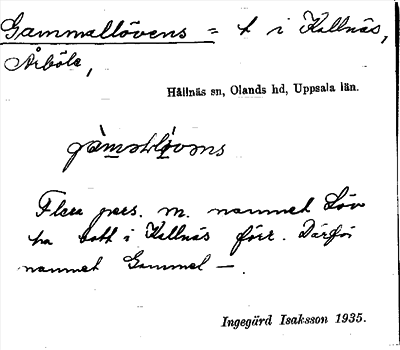 Gammellövens = t i Kallnäs,
Årböle,
Hållnäs sn, Olands hd, Uppsala län.
Flera pers. m. namnet Löv
ha bott i Kallnäs förr. Därför
namnet Gammel –.
Ingegärd Isaksson 1935.